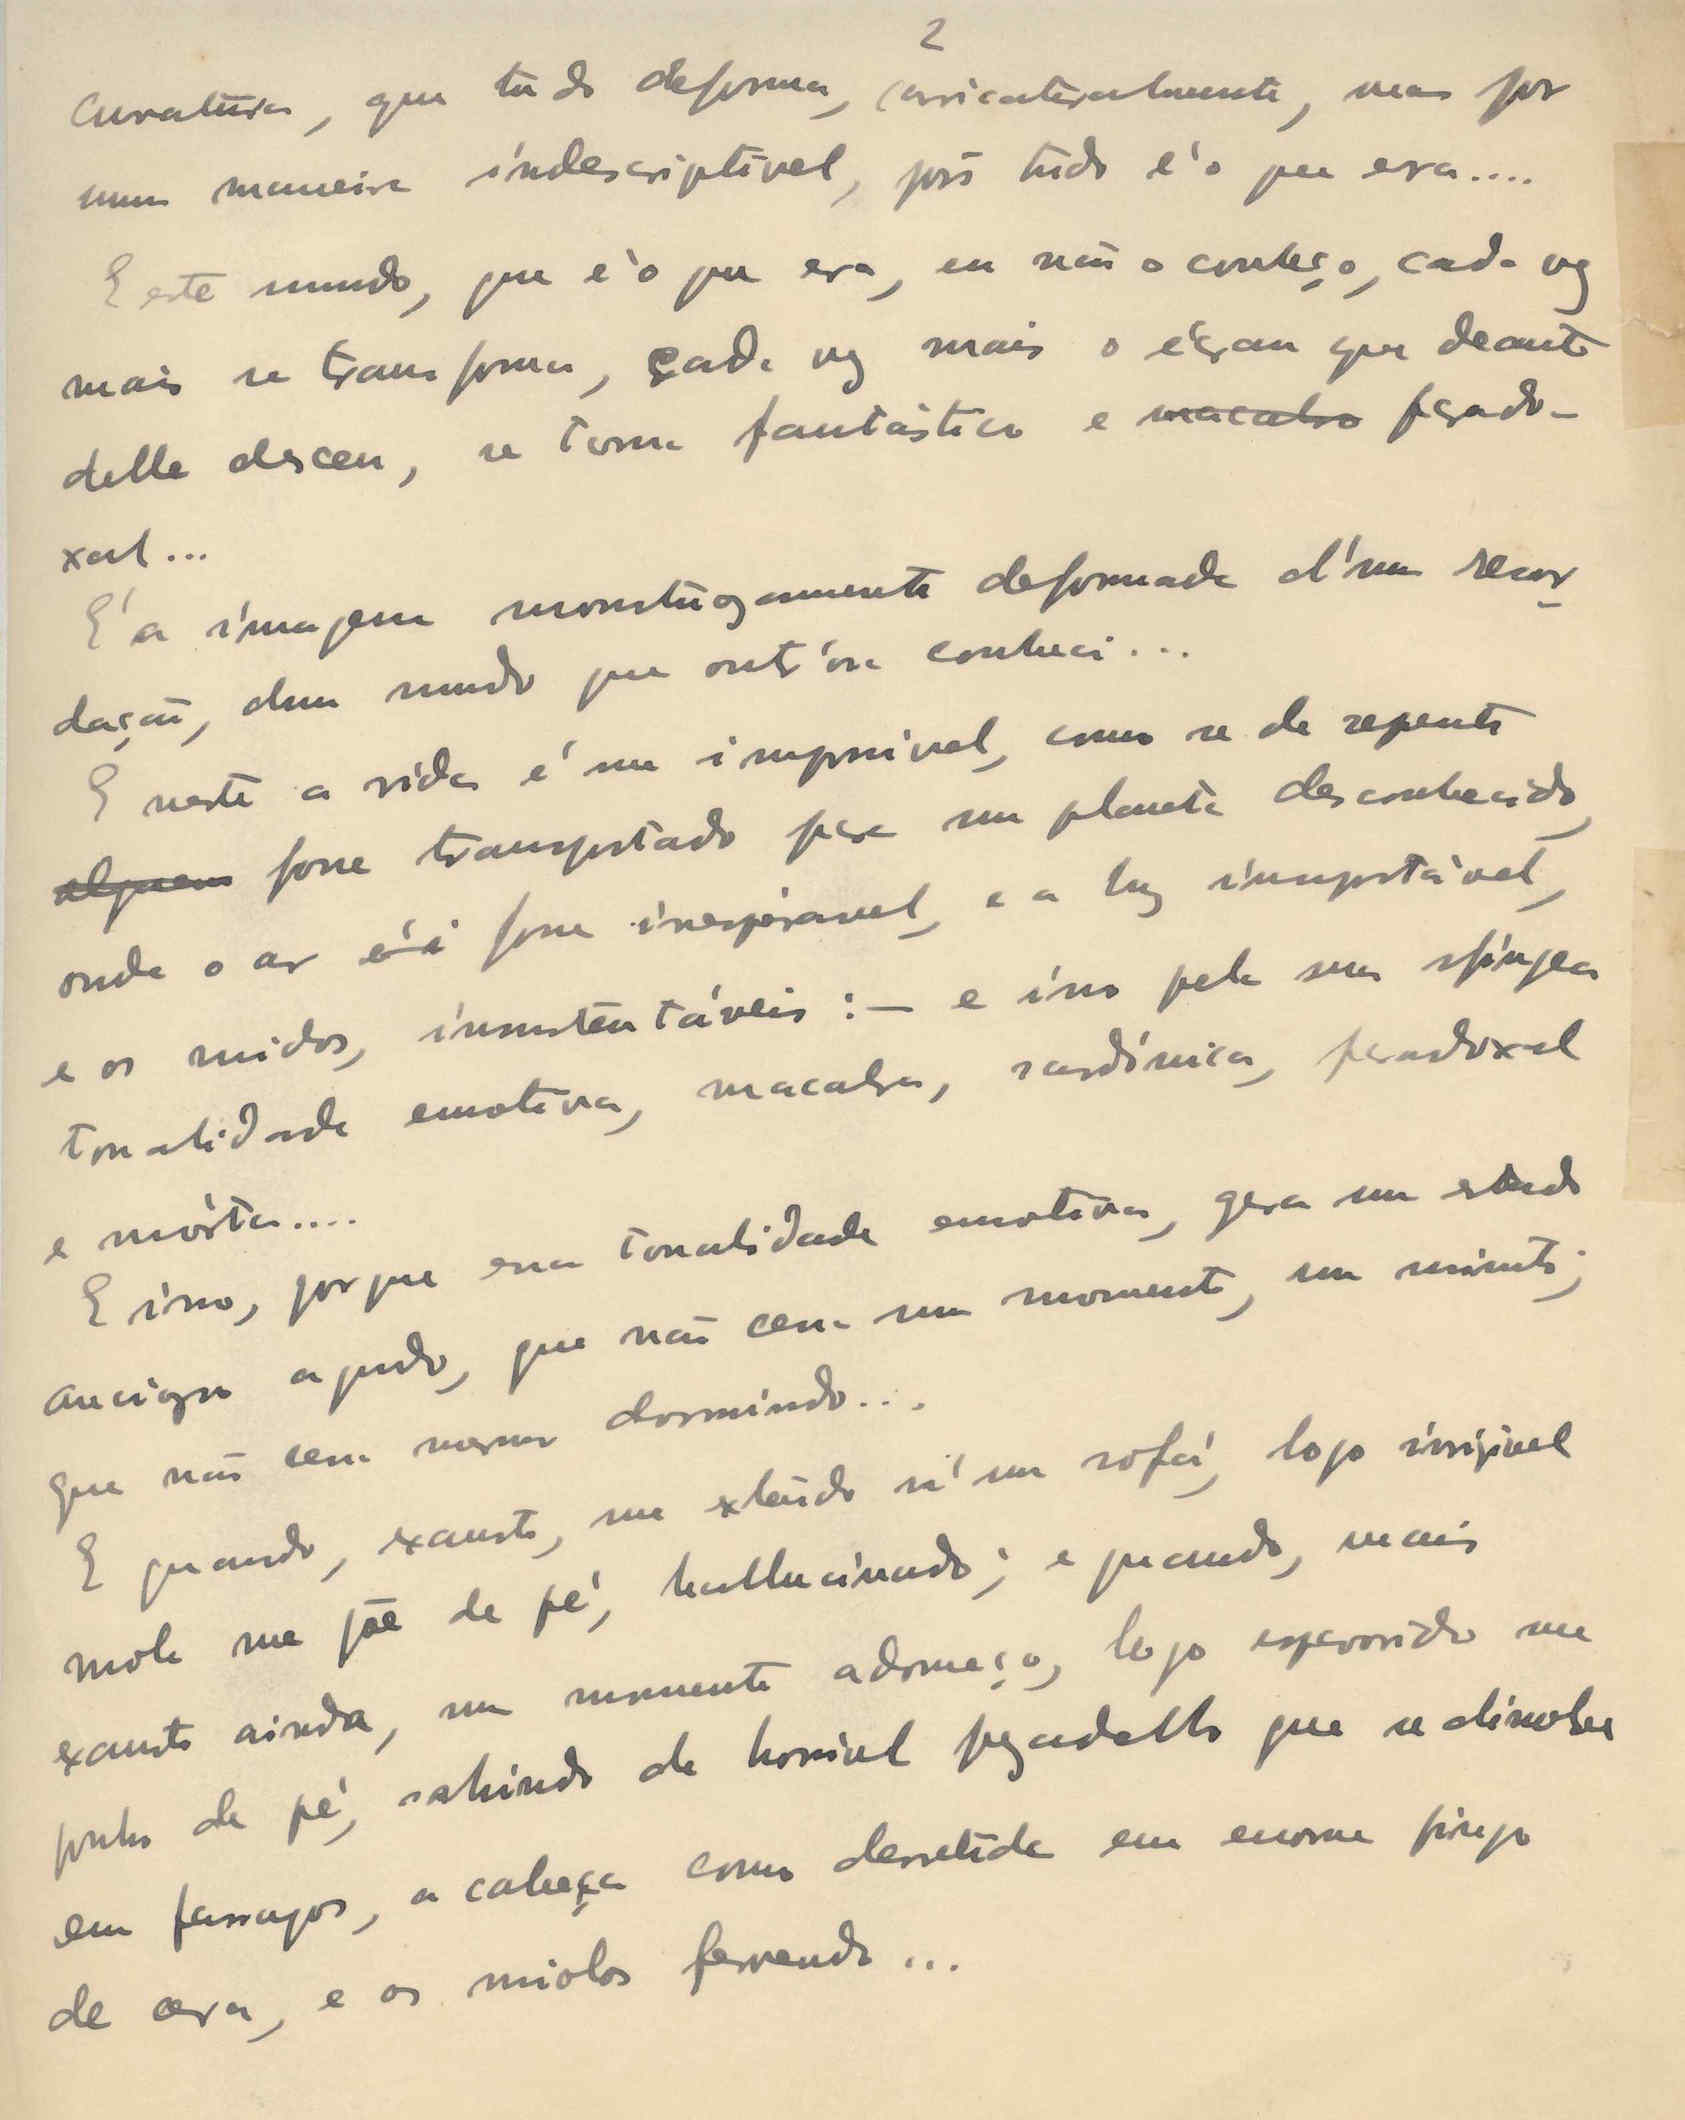 2
curvatura, que tudo deforma, caricaturalmente, mas por
uma maneira indescriptível, pois tudo é o que era....
E este mundo, que é o que era, eu não o conheço, cada vez
mais se transforma, cada vez mais o écran que deante
delle desceu, se torna fantástico e macabro parado-
xal...
E' a imagem monstruosamente deformada d'uma recor-
dação, dum mundo que out'óra conheci...
E neste a vida é me impossivel, como se de repente
alguem fosse transportado para um planeta desconhecido,
onde o ar é i fosse irrespiravel, e a luz insuportável,
e os ruidos, insustentáveis:— e isso pela sua esfingea
tonalidade emotiva, macabra, sardónica, paradoxal
e mórta....
E isso, porque essa tonalidade emotiva, gera um estado
ancioso agudo, que não cessa um momento, um minuto;
que não cessa mesmo dormindo...
E quando, exausto, me extendo n'um sofá, logo irresistivel
mola me põe de pé, hallucinado; e quando, mais
exausto ainda, um momento adormeço, logo espavorido me
ponho de pé, sahindo de horrivel pezadello que se dissolve
em farrapos, a cabeça como derretida em enorme pingo
de cera, e os miolos fervendo...